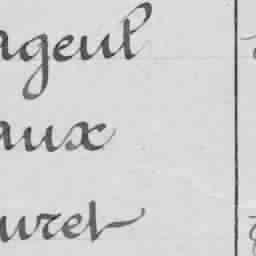 ageul
aux
uret